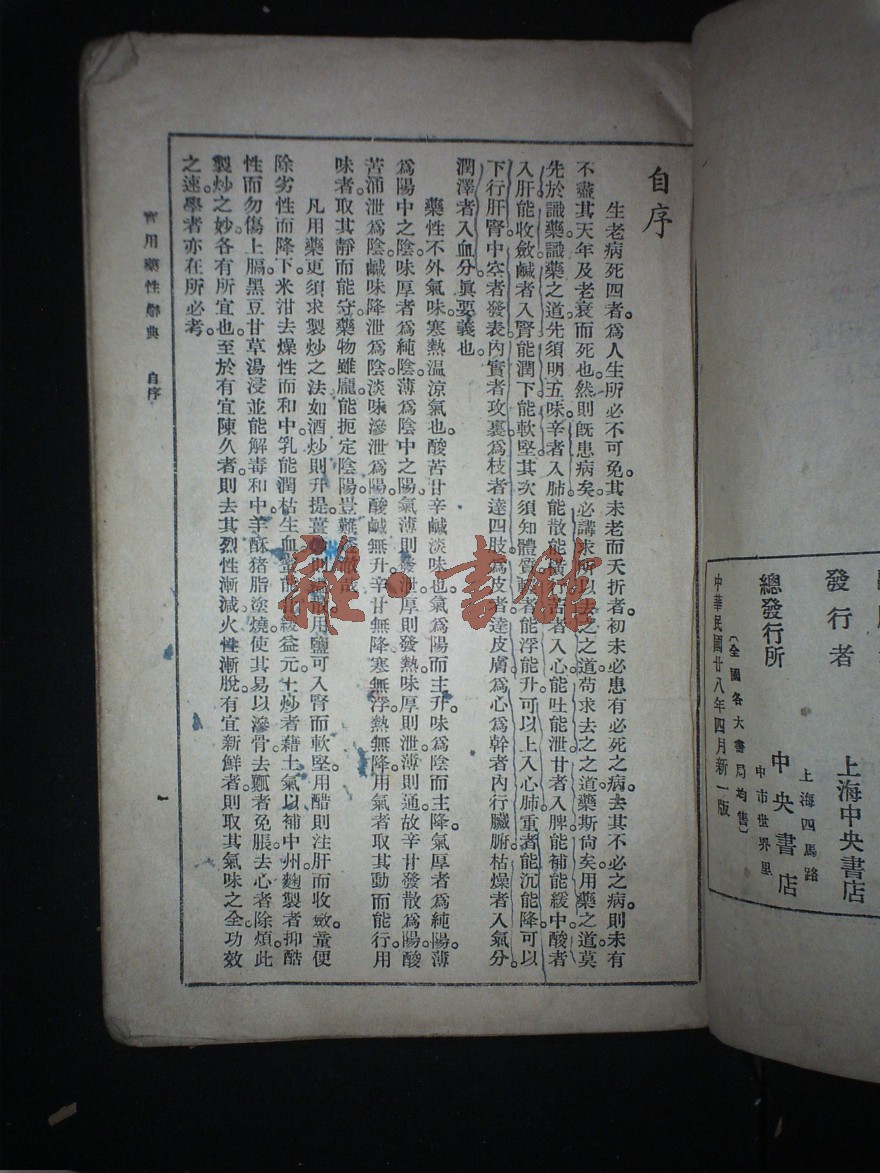 自序
生老病死四者。爲人生所必不可免。其未老而夭折者。初未必患有必死之病。去其不必之病。則未有
不盡其天年及老衰而死也。然則旣患病矣。必講求所以去之之道。苟求去之之道。藥斯尙矣。用藥之道。莫
先於識藥。識藥之道。先須明五味。辛者入肺。能散能橫。苦者入心。能吐能泄。甘者入脾。能補能緩中。酸者
入肝。能收斂。鹹者入腎。能潤下。能軟堅。其次須知體質。輕者能浮能升。可以上入心肺。重者能沉能降。可以
下行肝腎。中空者發表。內實者攻裏。爲枝者達四肢。爲皮者達皮膚。爲心爲幹者內行臟腑。枯燥者入氣分。
潤澤者入血分。眞要義也。
藥性不外氣味。寒熱温涼氣也。酸苦甘辛鹹淡味也。氣爲陽而主升。味爲陰而主降。氣厚者爲純陽。薄
爲陽中之陰。味厚者爲純陰。薄爲陰中之陽。氣薄則發泄。厚則發熱。味厚則泄。薄則通。故辛甘發散爲陽。酸
苦涌泄爲陰。鹹味降泄爲陰。淡味滲泄爲陽。酸鹹無升。辛甘無降。寒無浮。熱無降。用氣者取其動而能行。用
味者取其靜而能守。藥物雖龐。能扼定陰陽。豈難
凡用藥更須求製炒之法。如酒炒則升提。薑 用鹽可入腎而軟堅。用醋則注肝而收斂。童便
除劣性而降下。米泔去燥性而和中。乳能潤枯生血。蜜能甘緩益元。土炒者藉土氣以補中州。麴製者抑酷
性而勿傷上膈。黑豆甘草湯浸。並能解毒和中。羊酥猪脂塗燒。使其易以滲骨。去瓤者免脹。去心者除煩。此
製炒之妙。各有所宜也。至於有宜陳久者。則去其烈性漸減。火性漸脫。有宜新鮮者。則取其氣味之全。功效
之速。學者亦在所必考。
實用藥性辭典 自序 一
發行者 上海中央書店
總發行所 上海四馬路中市世界里 中央書店
（全國各大書局均售）
中華民國廿八年四月新一版
雜·書館